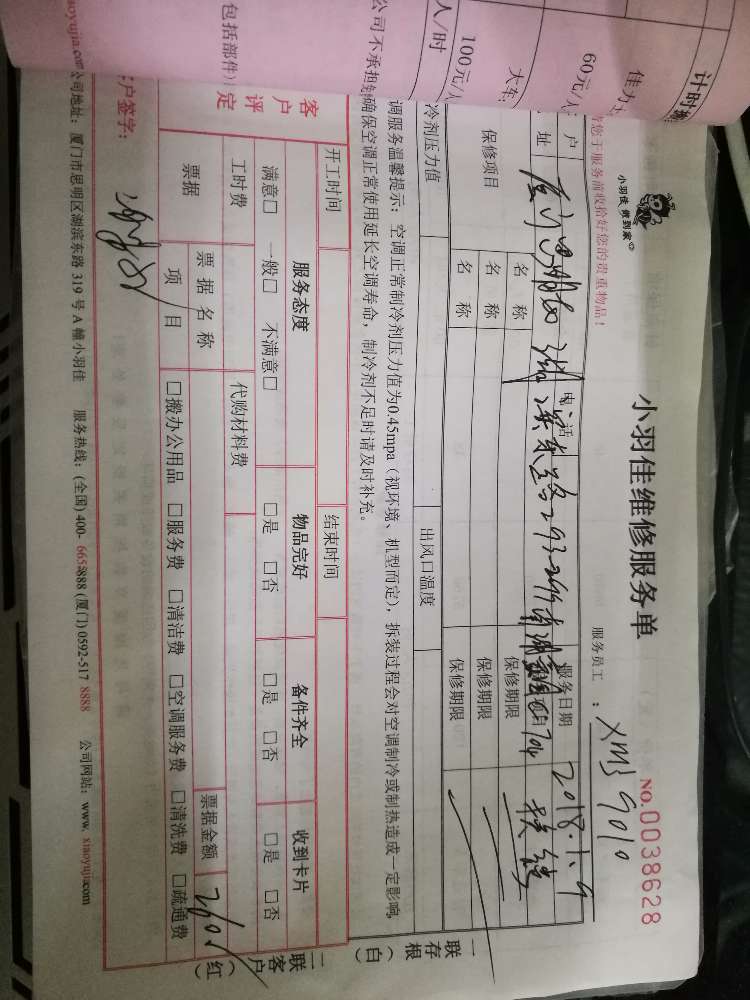 计时
佳力
60元/人
大车
100元/人
人/时
公司不承担
包括部件)
小羽佳 到家
小羽佳维修服务单
NO.0038628
您于服务前收拾好您的贵重物品!
服务员工 : XMJ 9010
户
电话
服务日期 2018.1.9
址
保修项目
名 称
保修期限
名 称
保修期限
名 称
保修期限
冷剂压力值
出风口温度
调服务温馨提示:空调正常制冷剂压力值为0.45mpa(视环境、机型而定),拆装过程会对空调制冷或制热造成一定影响,
确保空调正常使用延长空调寿命,制冷剂不足时请及时补充。
开工时间
结束时间
客户评定
服务态度
物品完好
备件齐全
收到卡片
满意□ 一般□ 不满意□
□是 □否
□是 □否
□是 □否
工时费
代购材料费
票据
票据名称
票据金额
项 目
□搬办公用品 □服务费 □清洁费 □空调服务费 □清洗费 □疏通费
户签字:
一联 存根 (白)
二联 客户 (红)
xiaoyujia.com
公司地址:厦门市思明区湖滨东路 319 号 A 幢小羽佳 服务热线:(全国) 400-6658888 (厦门) 0592-517 8888 公司网站:www. xiaoyujia.com